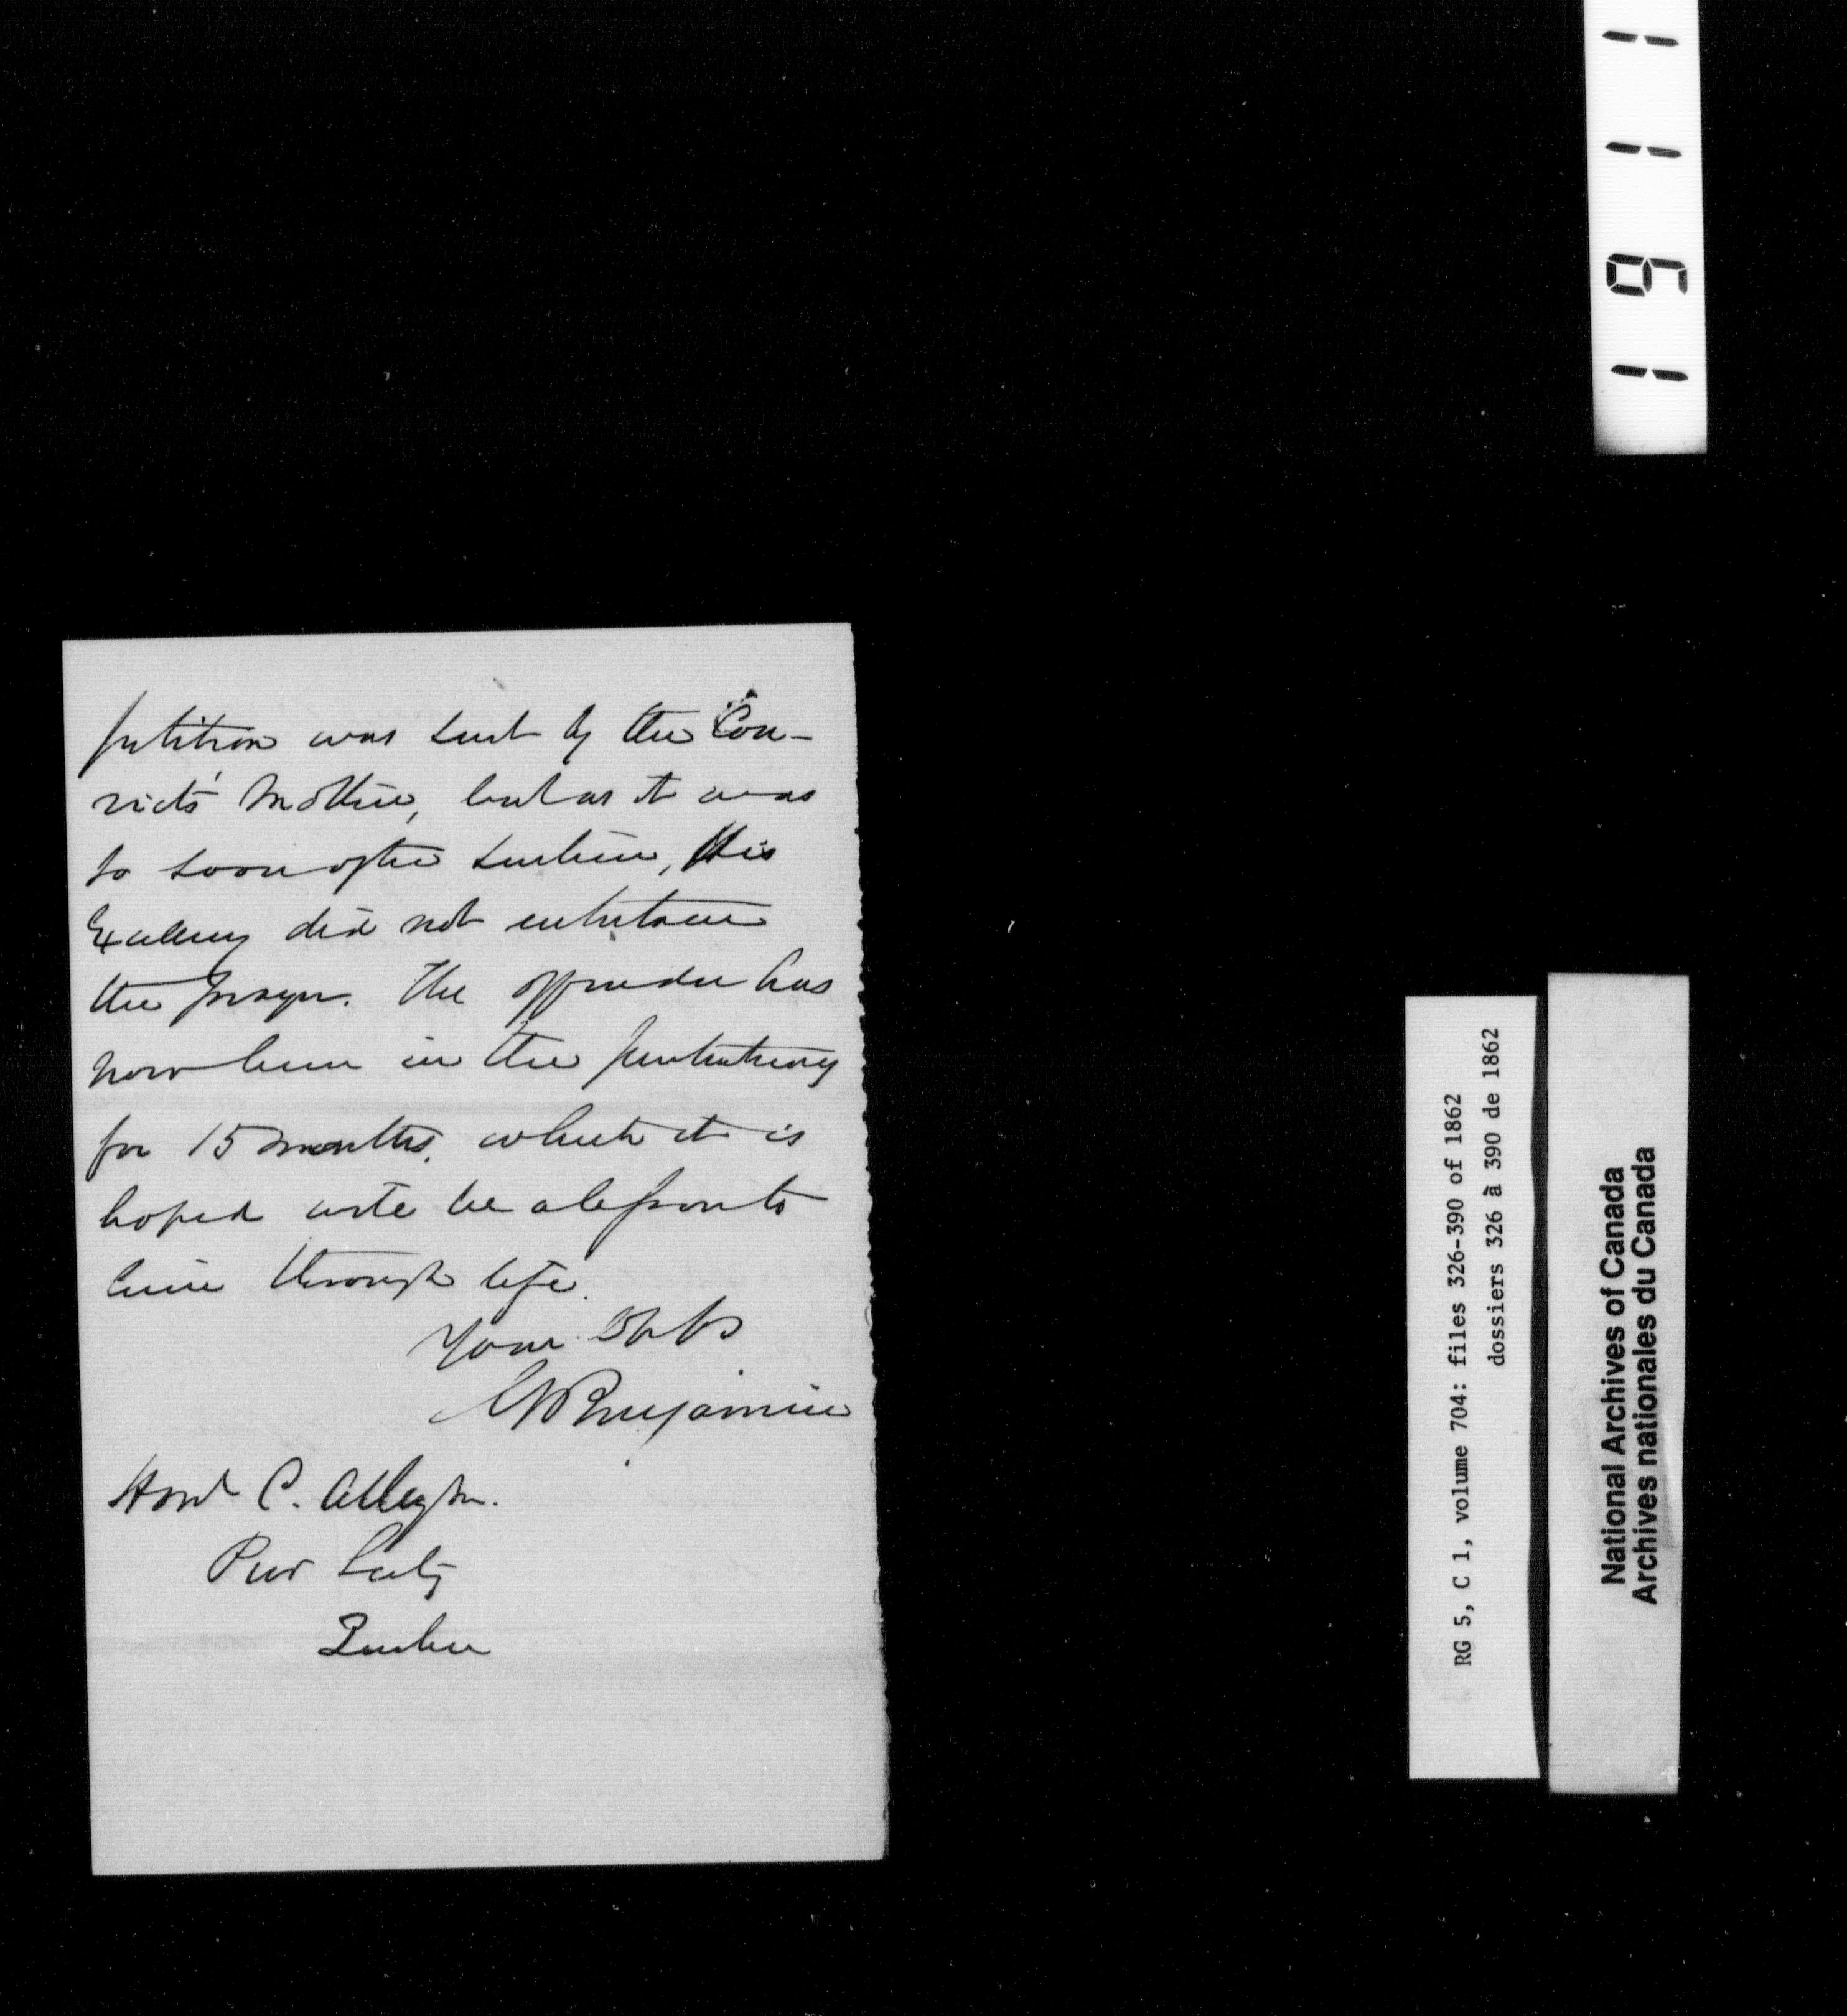 petition was sent by the Con-
vict's Mother, but as it was
so soon after sentence, His
Excellency did not entertain
the prayer. The offender has
now been in the penitentiary
for 15 months, which it is
hoped will be a lesson to
him through life.
Your Obt St
G Benjamin
Honl C. Alleyn.
Prov Secty
Quebec
1161
RG 5, C 1, volume 704: files 326-390 of 1862
dossiers 326 à 390 de 1862
National Archives of Canada
Archives nationales du Canada